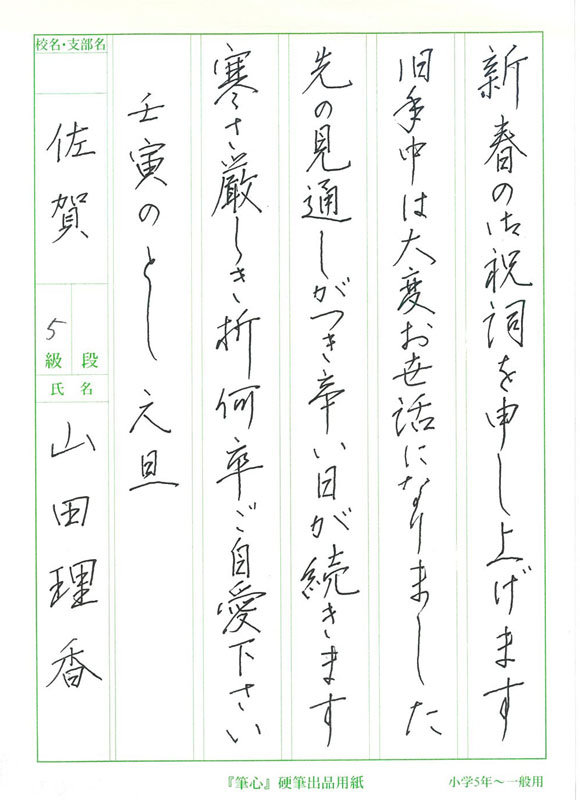 新春の御祝詞を申し上げます
旧年中は大変お世話になりました
先の見通しがつき辛い日が続きます
寒さ厳しき折何卒ご自愛下さい
壬寅のとし元旦
校名・支部名
佐賀
段
5級
氏名
山田理香
『筆心』硬筆出品用紙
小学5年〜一般用